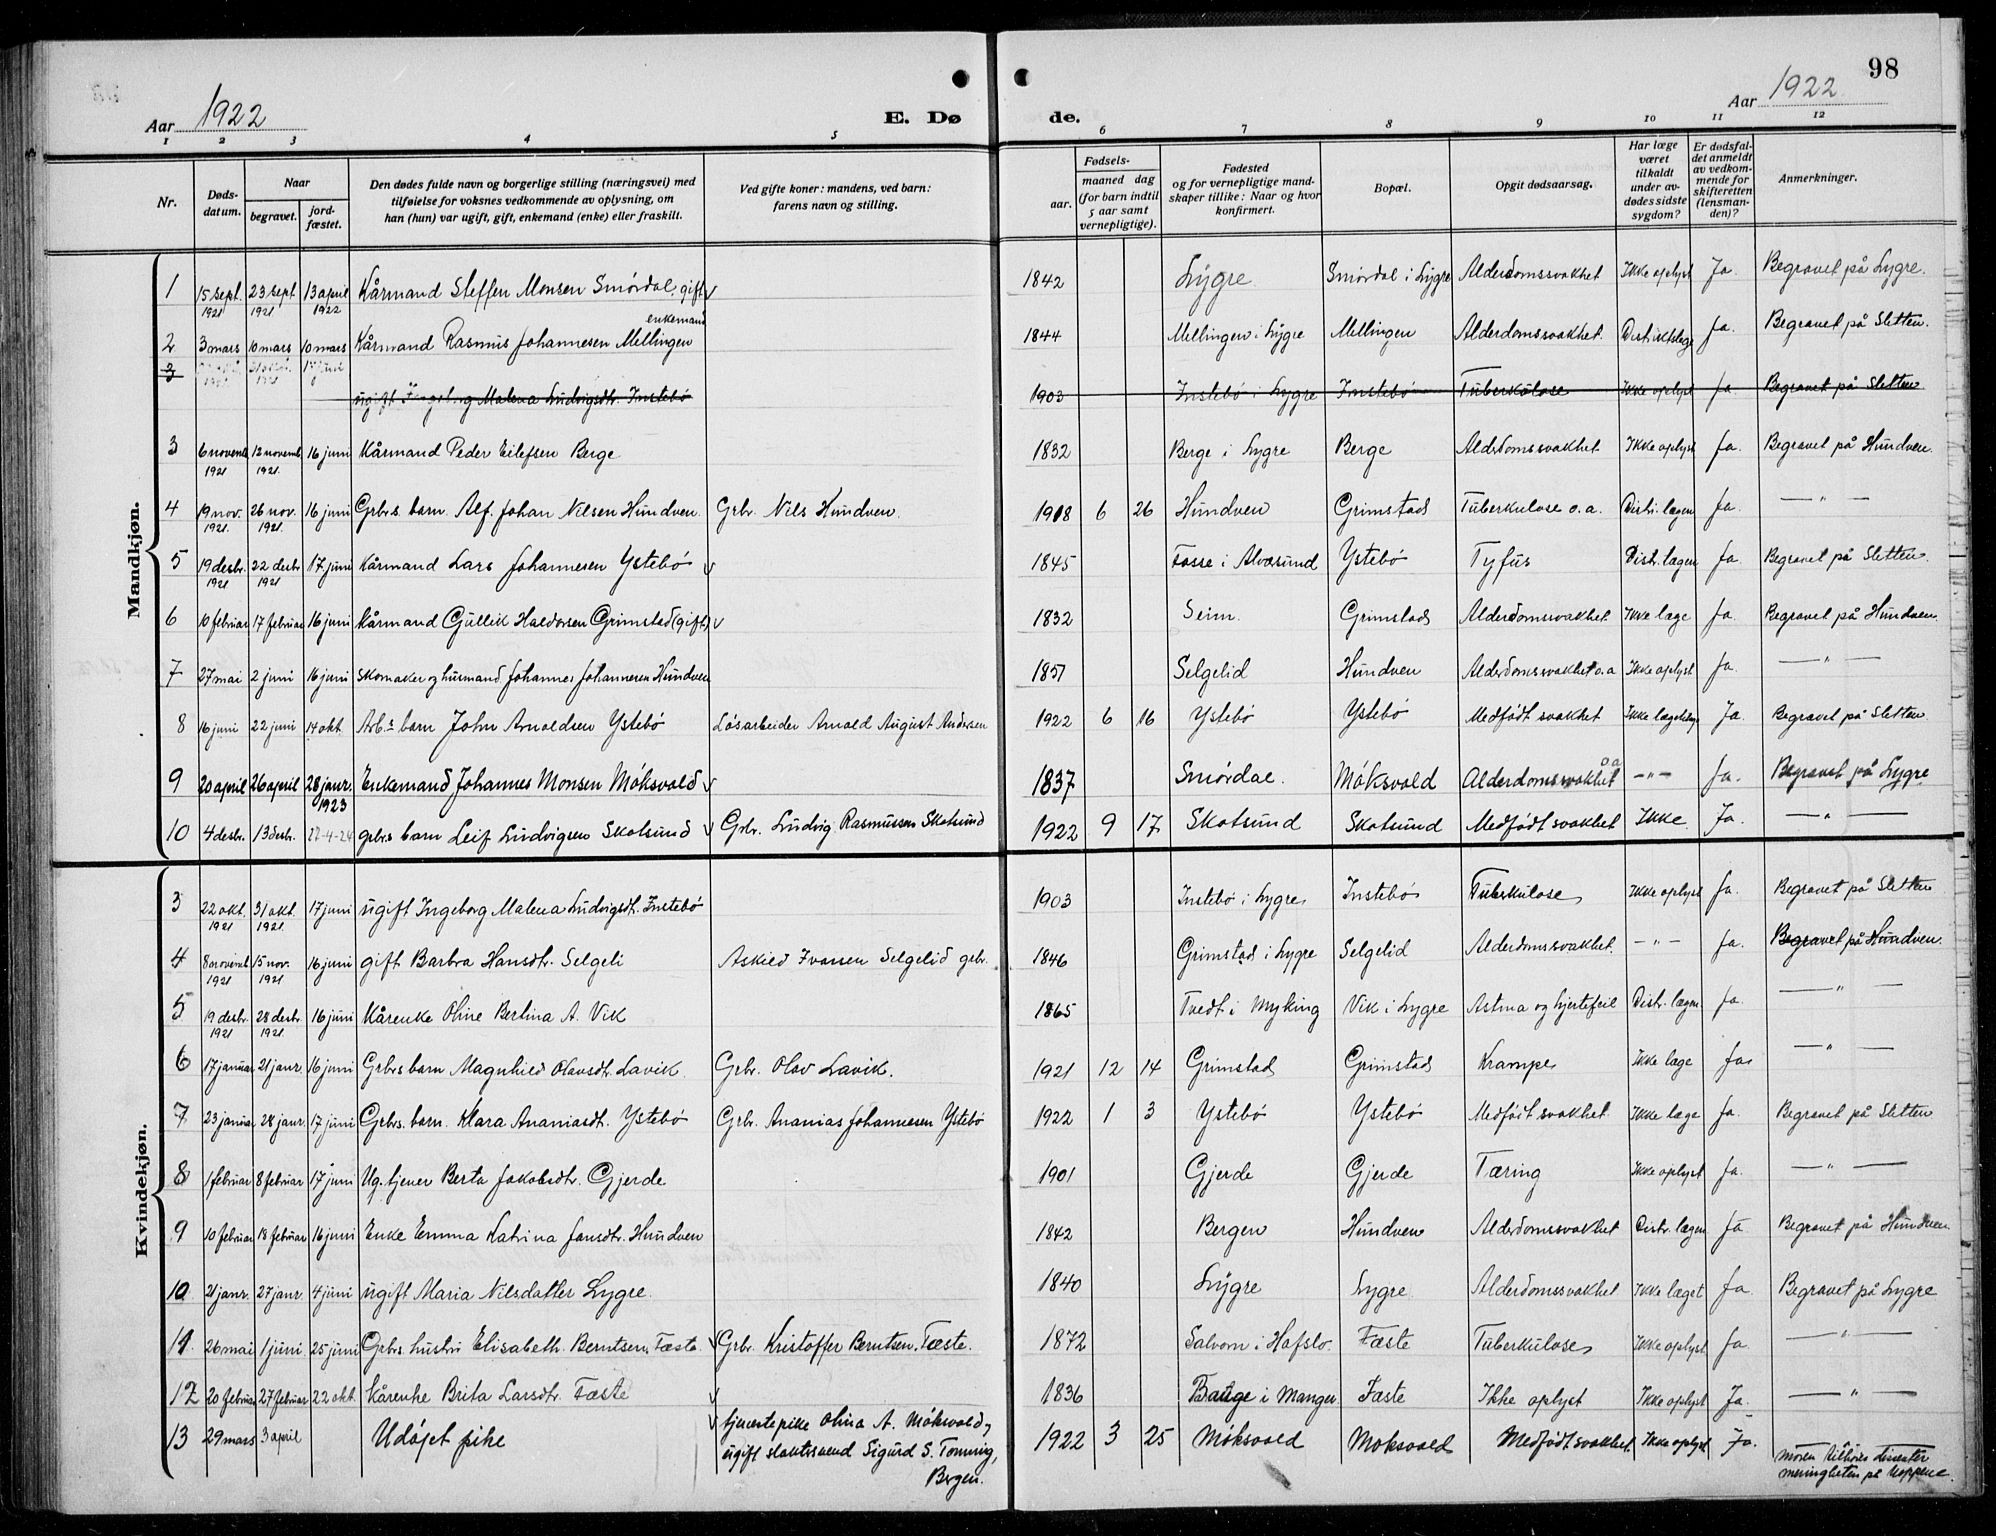 98
Aar 1922
E. Dø
de.
Aar 1922
1 2 3 4 5 6 7 8 9 10 11 12
Nr.
Døds-
datum.
Naar
begravet.
jord-
fæstet.
Den dødes fulde navn og borgerlige stilling (næringsvei) med
tilføielse for voksnes vedkommende av oplysning, om
han (hun) var ugift, gift, enkemand (enke) eller fraskilt.
Ved gifte koner: mandens, ved barn:
farens navn og stilling.
Fødsels-
aar.
maaned dag
(for barn indtil
5 aar samt
vernepligtige).
Fødested
og for vernepligtige mand-
skaper tillike: Naar og hvor
konfirmert.
Bopæl.
Opgit dødsaarsag.
Har læge
været
tilkaldt
under av-
dødes sidste
sygdom?
Er dødsfal-
det anmeldt
av vedkom-
mende for
skifteretten
(lensman-
den)?
Anmerkninger.
Mandkjøn.
1 15 sept. 1921 23 sept. 1921 13 april 1922 Kårmand Steffen Monsen Smørdal, gift 1842 Lygre Smørdal i Lygre Alderdomssvakhet Ikke oplyst Ja. Begravet på Lygre.
2 3 mars 10 mars 10 mars Kårmand Rasmus Johannesen Mellingen enkemand 1844 Mellingen i Lygre Mellingen Alderdomssvakhet. Distriktslæge Ja. Begravet på Sletten.
3 ugift Ingeborg Malena Ludvigsdtr. Instebø 1903 Instebø i Lygre Instebø Tuberkulose Ikke oplyst Ja Begravet på Sletten
3 6 novemb. 1921 12 novemb. 1921. 16 juni Kårmand Peder Eilefsen Berge 1832 Berge i Lygre Berge Alderdomssvakhet Ikke oplyst Ja. Begravet på Hundven.
4 19 nov. 1921. 26 nov. 1921. 16 juni Grbrs. barn Alf Johan Nilsen Hundven. Grbr. Nils Hundven. 1918 6 26 Hundven Grimstad Tuberkulose o.a. Distr. lægen Ja. — " —
5 19 desbr. 1921 22 desbr 1921 17 juni Kårmand Lars Johannesen Ystebø 1845 Fosse i Alvøsund Ystebø Tyfus Distr. lægen Ja Begravet på Sletten.
6 10 februar 17 februar 16 juni Kårmand Gullik Haldorsen Grimstad (gift) 1832 Seim. Grimstad Alderdomssvakhet Ikke læge Ja. Begravet på Hundven.
7 27 mai 2 juni 16 juni Skomaker og husmand Johannes Johannesen Hundven 1851 Selgelid Hundven Alderdomssvakhet o.a Ikke oplyst Ja. — " —
8 16 juni 22 juni 14 okt. Arb.s barn John Arnoldsen Ystebø Løsarbeider Arnold August Andersen 1922 6 16 Ystebø Ystebø Medfødt svakhet Ja. Begravet på Sletten.
9 20 april 26 april 28 janr. 1923 Enkemand Johannes Monsen Møksvold 1837 Smørdal. Møksvold Alderdomssvakhet o a — " — Ja. Begravet på Lygre
10 4 desbr. 13 desbr. 27-4-24 grbrs barn Leif Ludvigsen Skotsund Grbr. Ludvig Rasmussen Skotsund 1922 9 17 Skotsund Skotsund Medfødt svakhet Ikke Ja. — " —
Kvindekjøn.
3 22 okt. 1921 31 okt. 1921. 17 juni ugift Ingeborg Malena Ludvigsdt. Instebø 1903 Instebø i Lygre Instebø Tuberkulose Ikke oplyst Ja. Begravet på Sletten
4 8 novemb. 1921 15 nov. 1921 16 juni gift Barbra Hansdtr. Selgeli Askild Ivarsen Selgelid grbr. 1846 Grimstad i Lygre Selgelid Alderdomssvakhet. — " — Ja. Begravet på Hundven.
5 19 desbr. 1921 28 desbr 1921. 16 juni Kårenke Oline Bertina A. Vik 1865 Tvedt i Myking Vik i Lygre Astma og hjertefeil Distr. lægen Ja. — " —
6 17 januar 21 janr. 16 juni Grbrs barn Magnhild Olavsdt. Lavik. Grbr. Olav Lavik. 1921 12 14 Grimstad Grimstad Krampe Ikke læge Ja. — " —
7 23 januar 28 janr. 17 juni Grbrs. barn. Klara Ananiasdt. Ystebø Grbr. Ananias Johannesen Ystebø 1922 1 3 Ystebø Ystebø Medfødt svakhet. Ikke læge Ja. Begravet på Sletten
8 1 februar 8 februar 17 juni Ug. tjener Berta Jakobsdtr. Gjerde 1901 Gjerde Gjerde Tæring Ikke oplyst Ja. — " —
9 10 februar 18 februar 16 juni Enke Emma Katrina Jansdtr. Hundven 1842 Bergen Hundven Alderdomssvakhet Distr. lægen Ja Begravet på Hundven
10 21 janr. 27 janr. 4 juni ugift Maria Nilsdatter Lygre. 1840 Lygre Lygre. Alderdomssvakhet Ikke læget Ja. Begravet på Lygre
11. 26 mai 1 juni 25 juni Grbrs hustru Elisabeth Berntsen Fæste. Grbr. Kristoffer Berntsen Fæste. 1872 Salvorn i Hafslo. Fæste Tuberkulose Ikke oplyst Ja. — " —
12 20 februar 27 februar 22 okt. Kårenke Brita Larsdtr. Fæste 1836 Bauge i Manger Fæste Ikke oplyst Ikke oplyst Ja. — " —
13 29 mars 3 april Udøpt pike tjenestepike Olina A. Møksvold,
ugift Sigurd S. Tonning,
Bergen. 1922 3 25 Møksvold Moksvold Medfødt svakhet Ikke oplyst Ja. moren tilhører dissenter
menigheten på